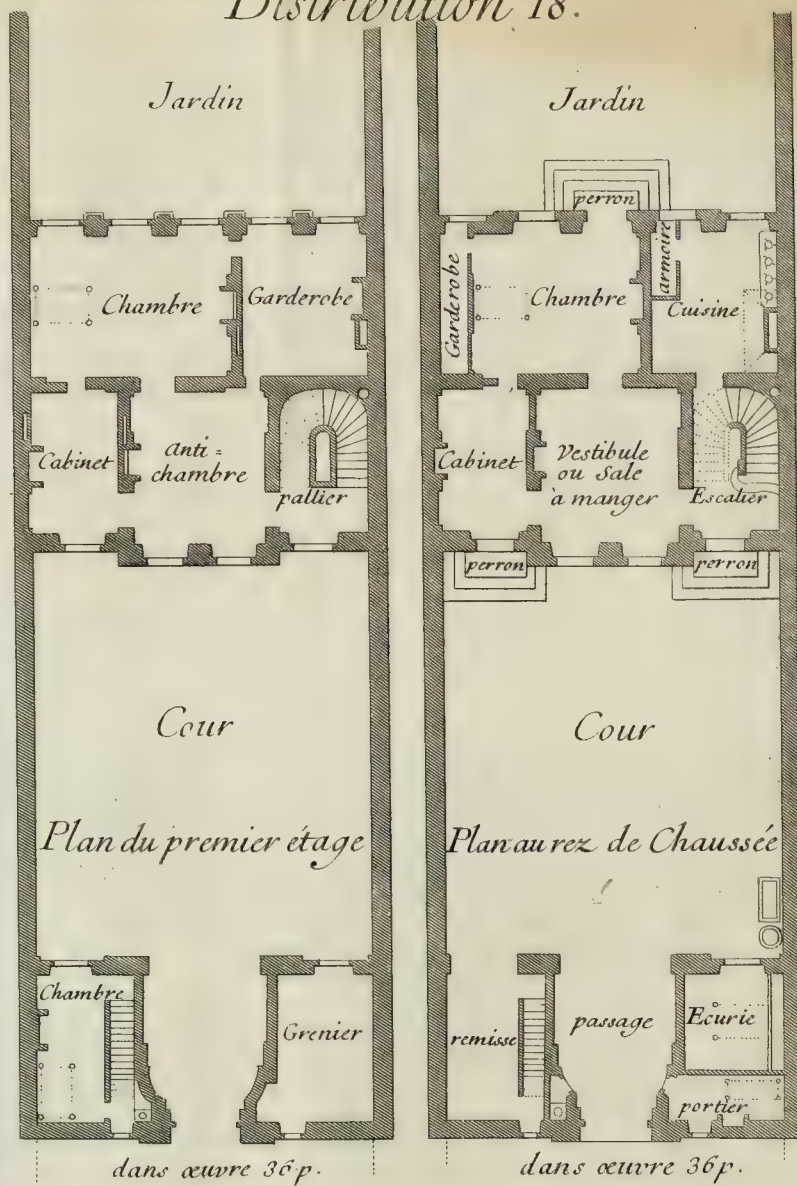 Distribution 18.
Jardin
Chambre
Garderobe
Cabinet
anti=
chambre
pallier
Cour
Plan du premier étage
Chambre
Grenier
dans œuvre 36 p.
Jardin
perron
Garderobe
Chambre
armoire
Cuisine
Cabinet
Vestibule
ou Sale
à manger
Escalier
perron
perron
Cour
Plan au rez de Chaussée
remisse
passage
Ecurie
portier
dans œuvre 36 p.